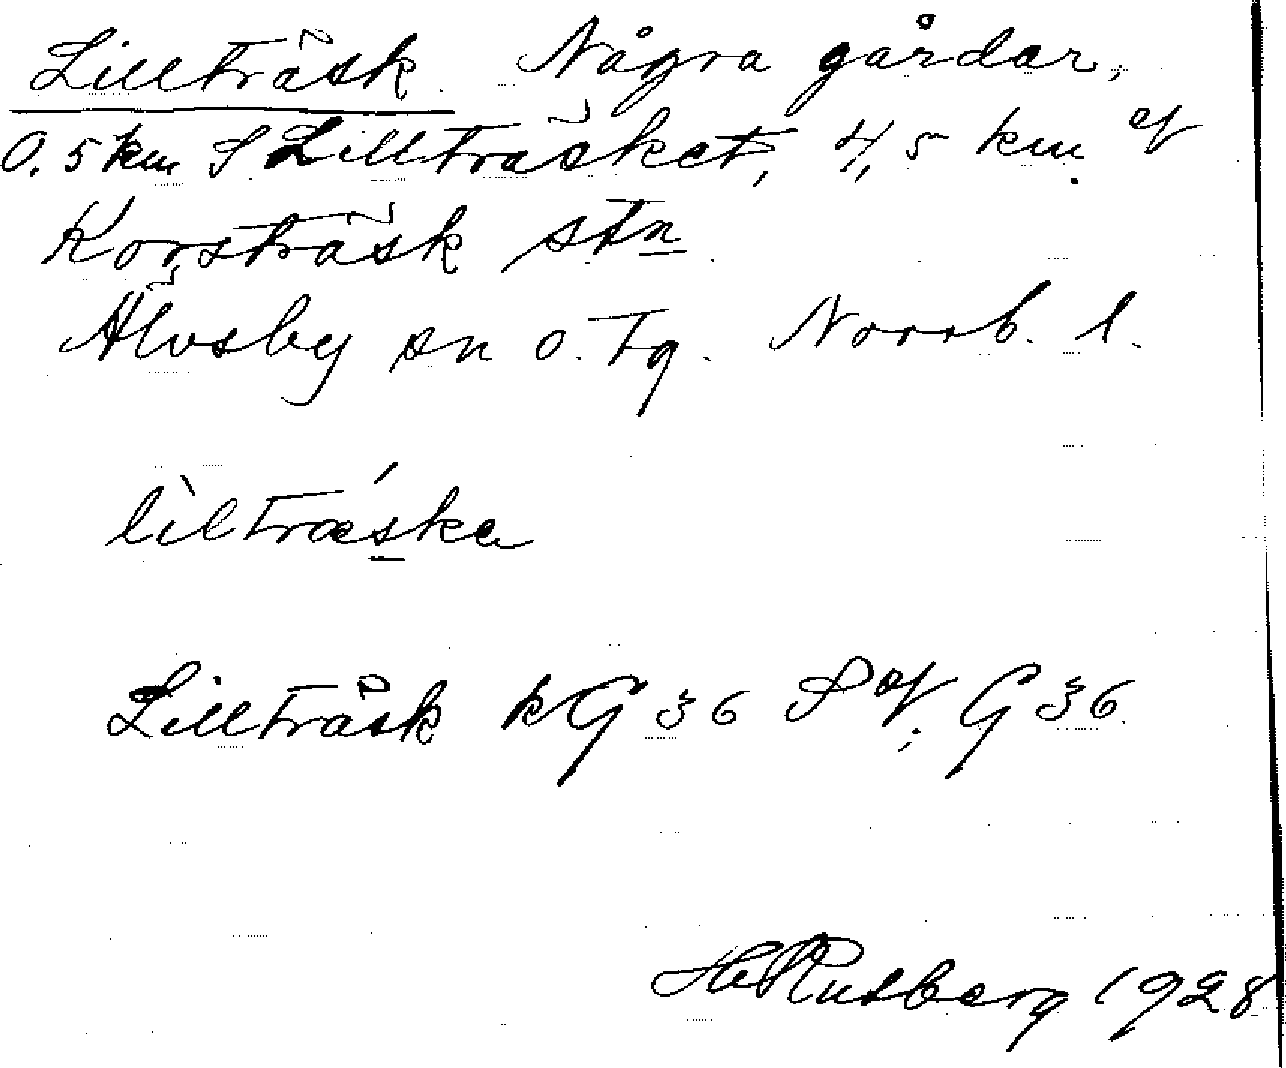 Lillträsk Några gårdar,
0.5 km S Lillträsket, 4,5 km of
Korsträsk stn
Älvsby sn o. tg. Norrb. l.
lìltrǽska
Lillträsk kG 36 S of G 36
Rutberg 1928